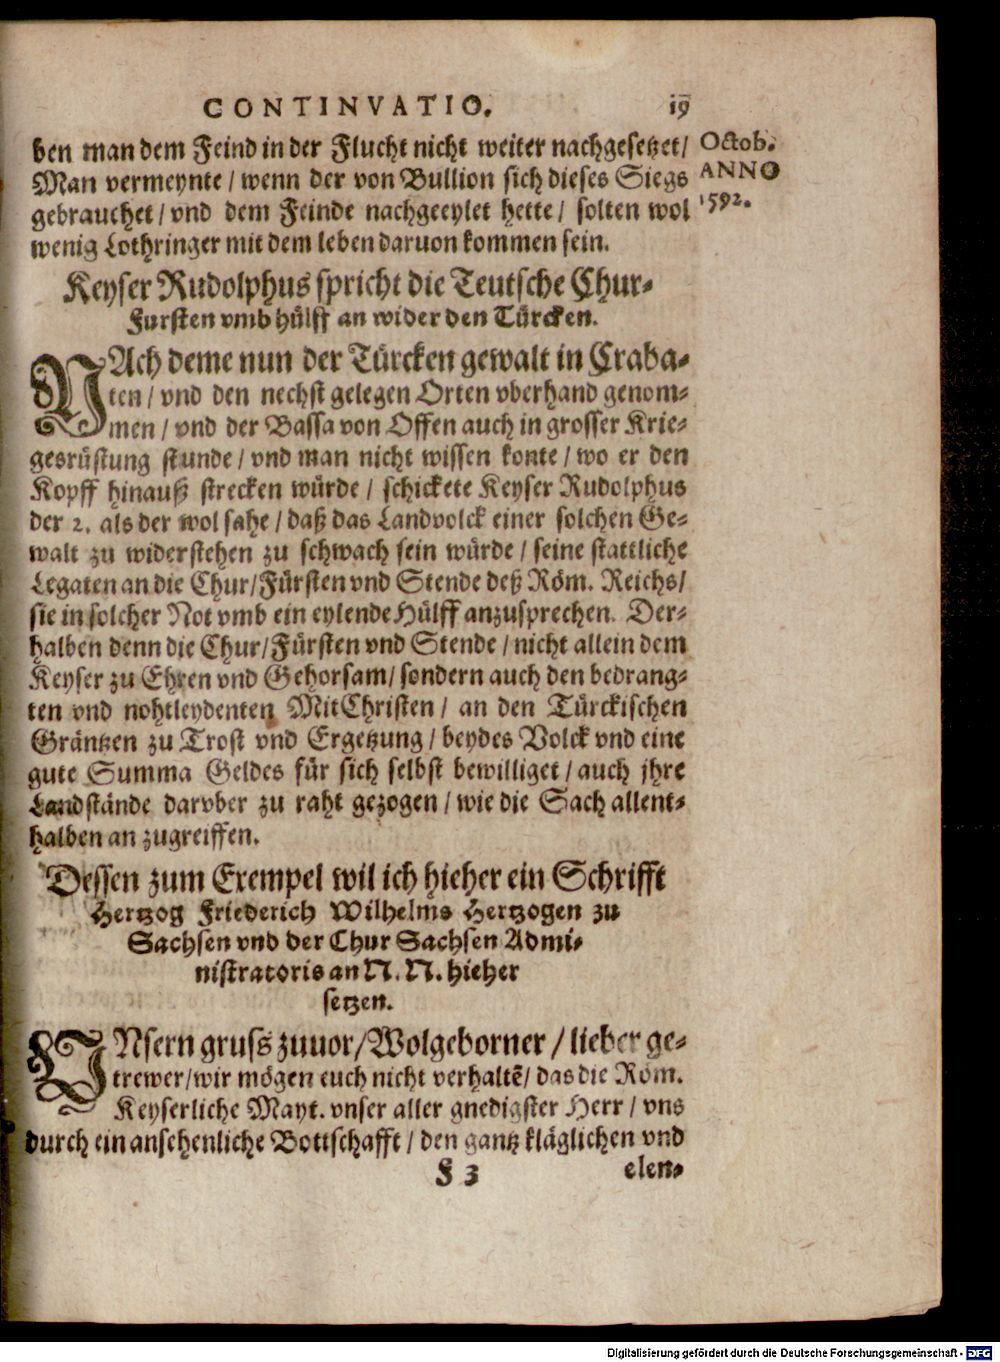 CONTINVATIO. 19
ben man dem Feind in der Flucht nicht weiter nachgesetzet/
Octob.
Man vermeynte / wenn der von Bullion sich dieses Siegs
ANNO
gebrauchet / vnd dem Feinde nachgeeylet hette / solten wol
1592.
wenig Lothringer mit dem leben daruon kommen sein.
Keyser Rudolphus spricht die Teutsche Chur-
Fursten vmb hülff an wider den Türcken.
NAch deme nun der Türcken gewalt in Craba-
ten / vnd den nechst gelegen Orten vberhand genom-
men / vnd der Bassa von Offen auch in grosser Krie-
gesrüstung stunde / vnd man nicht wissen konte / wo er den
Kopff hinauß strecken würde / schickete Keyser Rudolphus
der 2. als der wol sahe / daß das Landvolck einer solchen Ge-
walt zu widerstehen zu schwach sein würde / seine stattliche
Legaten an die Chur/Fürsten vnd Stende deß Röm. Reichs/
sie in solcher Not vmb ein eylende Hülff anzusprechen. Der-
halben denn die Chur/Fürsten vnd Stende / nicht allein dem
Keyser zu Ehren vnd Gehorsam/ sondern auch den bedrang-
ten vnd nohtleydenten MitChristen / an den Türckischen
Gräntzen zu Trost vnd Ergetzung / beydes Volck vnd eine
gute Summa Geldes für sich selbst bewilliget / auch jhre
Landstände darvber zu raht gezogen / wie die Sach allent-
halben an zugreiffen.
Dessen zum Exempel wil ich hieher ein Schrifft
Hertzog Friederich Wilhelms Hertzogen zu
Sachsen vnd der Chur Sachsen Admi-
nistratoris an N. N. hieher
setzen.
VNsern gruss zuuor/Wolgeborner / lieber ge-
trewer/wir mögen euch nicht verhaltẽ/ das die Röm.
Keyserliche Mayt. vnser aller gnedigster Herr / vns
durch ein ansehenliche Bottschafft / den gantz kläglichen vnd
F 3 elen-
Digitalisierung gefördert durch die Deutsche Forschungsgemeinschaft - DFG